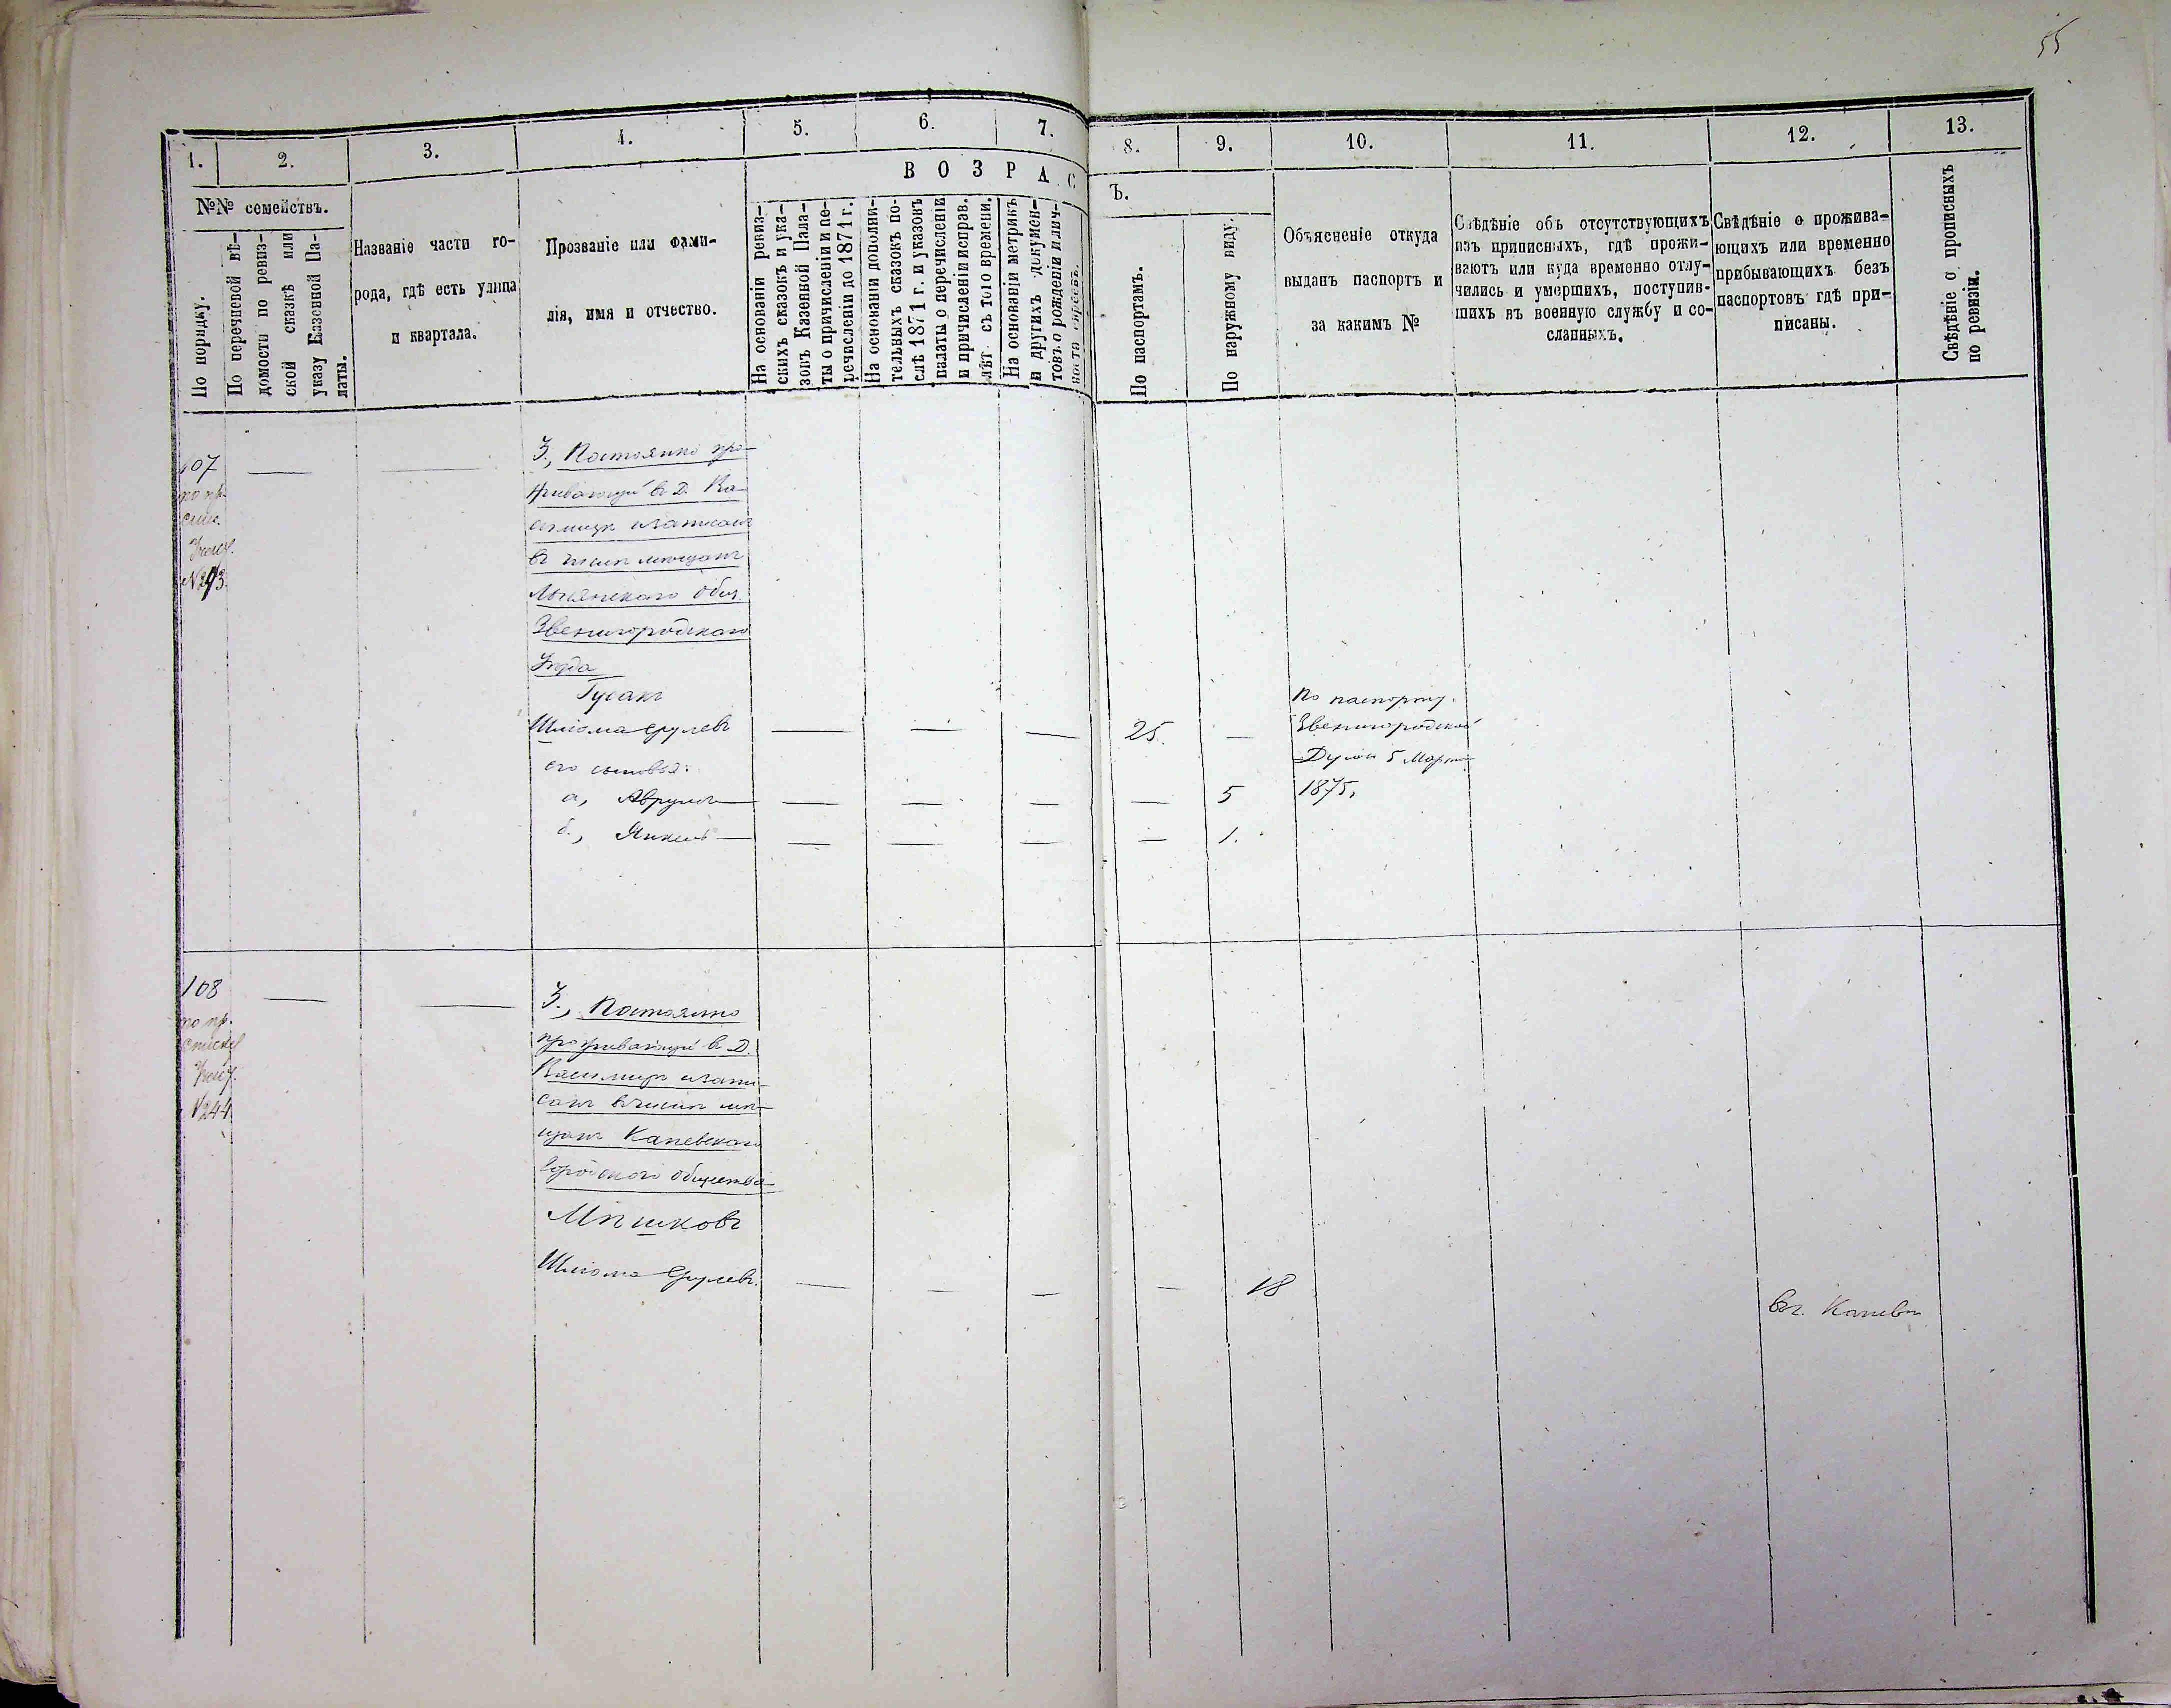 55
1.
2.
3.
4.
5.
6.
7.
8.
9.
10.
11.
12.
13.
№№ семействъ.
По порядку.
По перечневой вѣ-
домости по ревиз-
ской сказкѣ или
указу Казенной Па-
латы.
Названіе части го-
рода, гдѣ есть улица
и квартала.
Прозваніе или фами-
лія, имя и отчество.
ВОЗРАС
Ъ.
На основаніи ревиз-
скихъ сказокъ и ука-
зовъ Казенной Пала-
ты о причисленіи и пе-
речисленіи до 1871 г.
На основаніи дополни-
тельныхъ сказокъ по-
слѣ 1871 г. и указовъ
палаты о перечисленіи
и причисленіи исправ.
лѣт. съ того времени.
На основаніи метрикъ
и другихъ докумен-
товъ о рожденіи и лич-
По паспортамъ.
По наружному виду.
Объясненіе откуда
выданъ паспортъ и
за какимъ №
Свѣдѣніе объ отсутствующихъ
изъ приписныхъ, гдѣ прожи-
ваютъ или куда временно отлу-
чились и умершихъ, поступив-
шихъ въ военную службу и со-
сланныхъ.
Свѣдѣніе о прожива-
ющихъ или временно
прибывающихъ безъ
паспортовъ гдѣ при-
писаны.
Свѣдѣніе о прописныхъ
по ревизіи.
107
по пр.
спис.
№243.
3., Постоянно про-
живающій в Д. Ка-
записанъ
в числѣ мѣщанъ
Лысянскаго Общ.
Звенигородскаго
Уѣзда
Гусакъ
Шліома Срулевъ
25.
его сыновья:
а, Аврумъ
5
б., Янкель
1.
По паспорту.
Звенигородской
Думы 5 Марта
1875,
108
по пр.
списку
№244
3., Постоянно
проживающій в Д.
Казимирѣ запи-
санъ в числѣ мѣ-
щанъ Каневскаго
городского общества
Мѣшковъ
Шліома Срулевъ.
18
Вг. Каневѣ